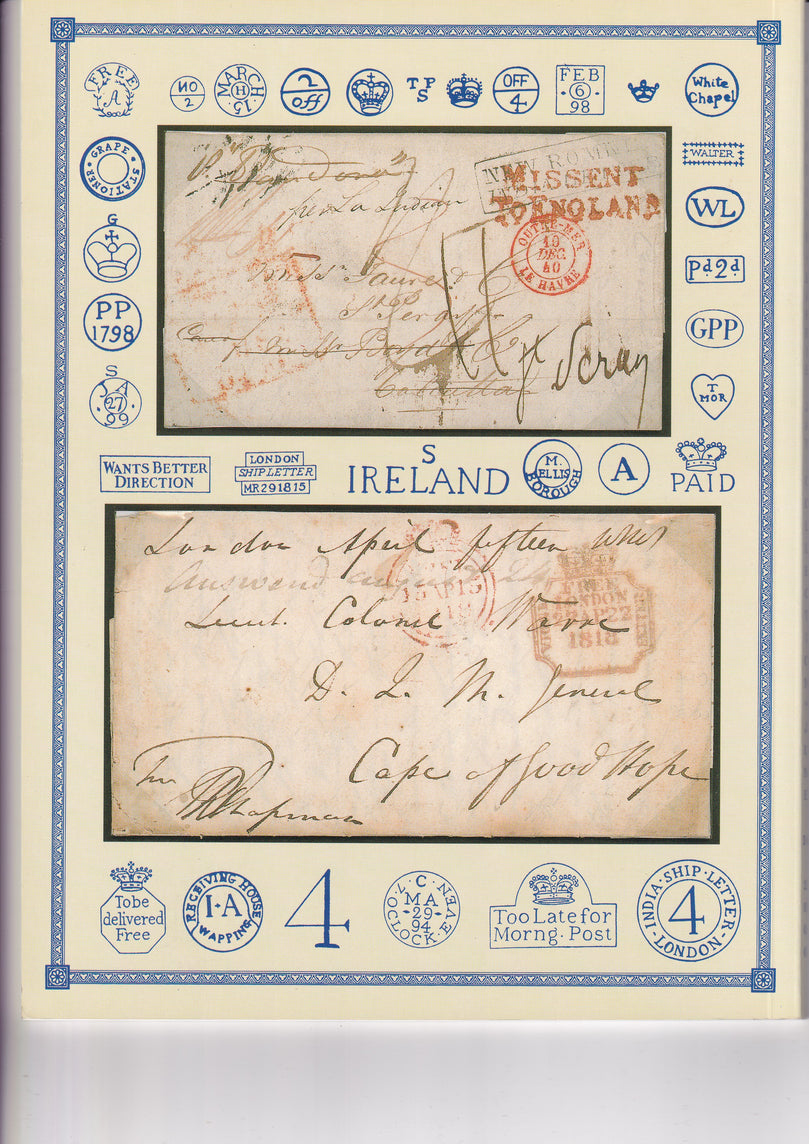 FREE
A
NO
2
MARCH·15
H
2
off
T P
S
OFF
4
FEB
6
98
White
Chapel
GRAPE · STATIONER
WALTER
G
WL
Pd 2d.
PP
1798
GPP
S
JA
27
99
T
MOR
NEW ROMNEY
MISSENT
TO ENGLAND
per La Indian
OUTRE-MER
10
DEC
40
LE HAVRE
Calcutta
WANTS BETTER
DIRECTION
LONDON
SHIP LETTER
MR 29 1815
S
IRELAND
M.
ELLIS
BOROUGH
A
PAID
London April fifteen
Answered august 24
15 AP 15
FREE
LONDON
AP 22
1818
Lieut. Colonel Warre
D. Q. M. General
Cape of Good Hope
Chapman
To be
delivered
Free
RECEIVING HOUSE
I·A
WAPPING
4
·C·
MA
·29·
94
7·O'CLOCK·EVEN
Too Late for
Morng. Post
·INDIA·SHIP·LETTER·
4
LONDON